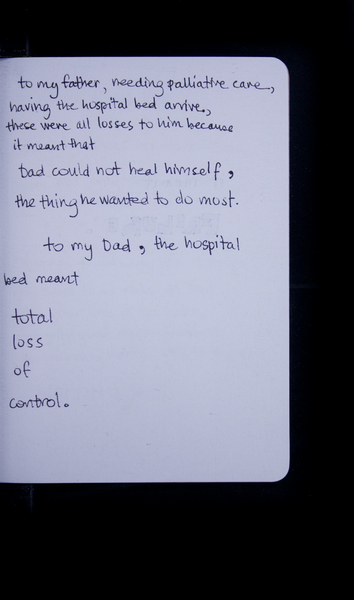 to my father, needing palliative care,
having the hospital bed arrive,
these were all losses to him because
it meant that
Dad could not heal himself,
the thing he wanted to do most.
to my Dad, the hospital
bed meant
total
loss
of
control.